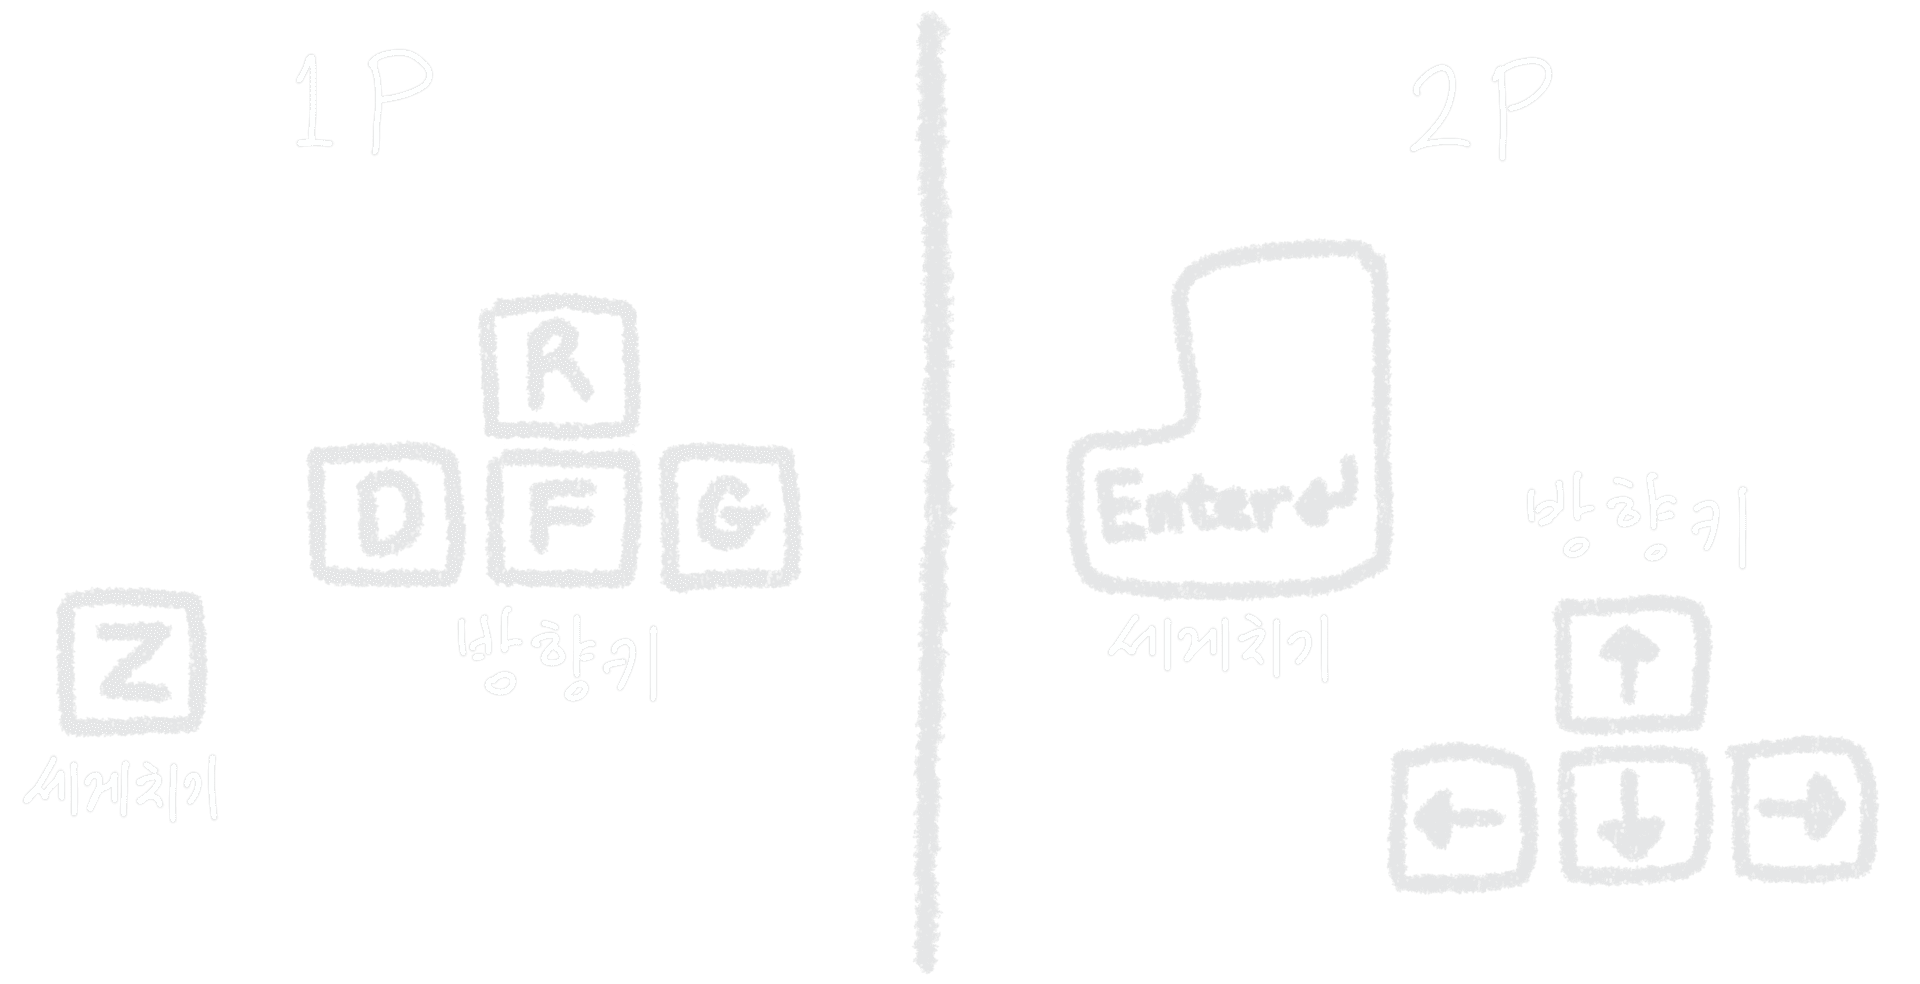 1P
R
D F G
방향키
Z
세게치기
2P
Enter↵
세게치기
방향키
↑
← ↓ →